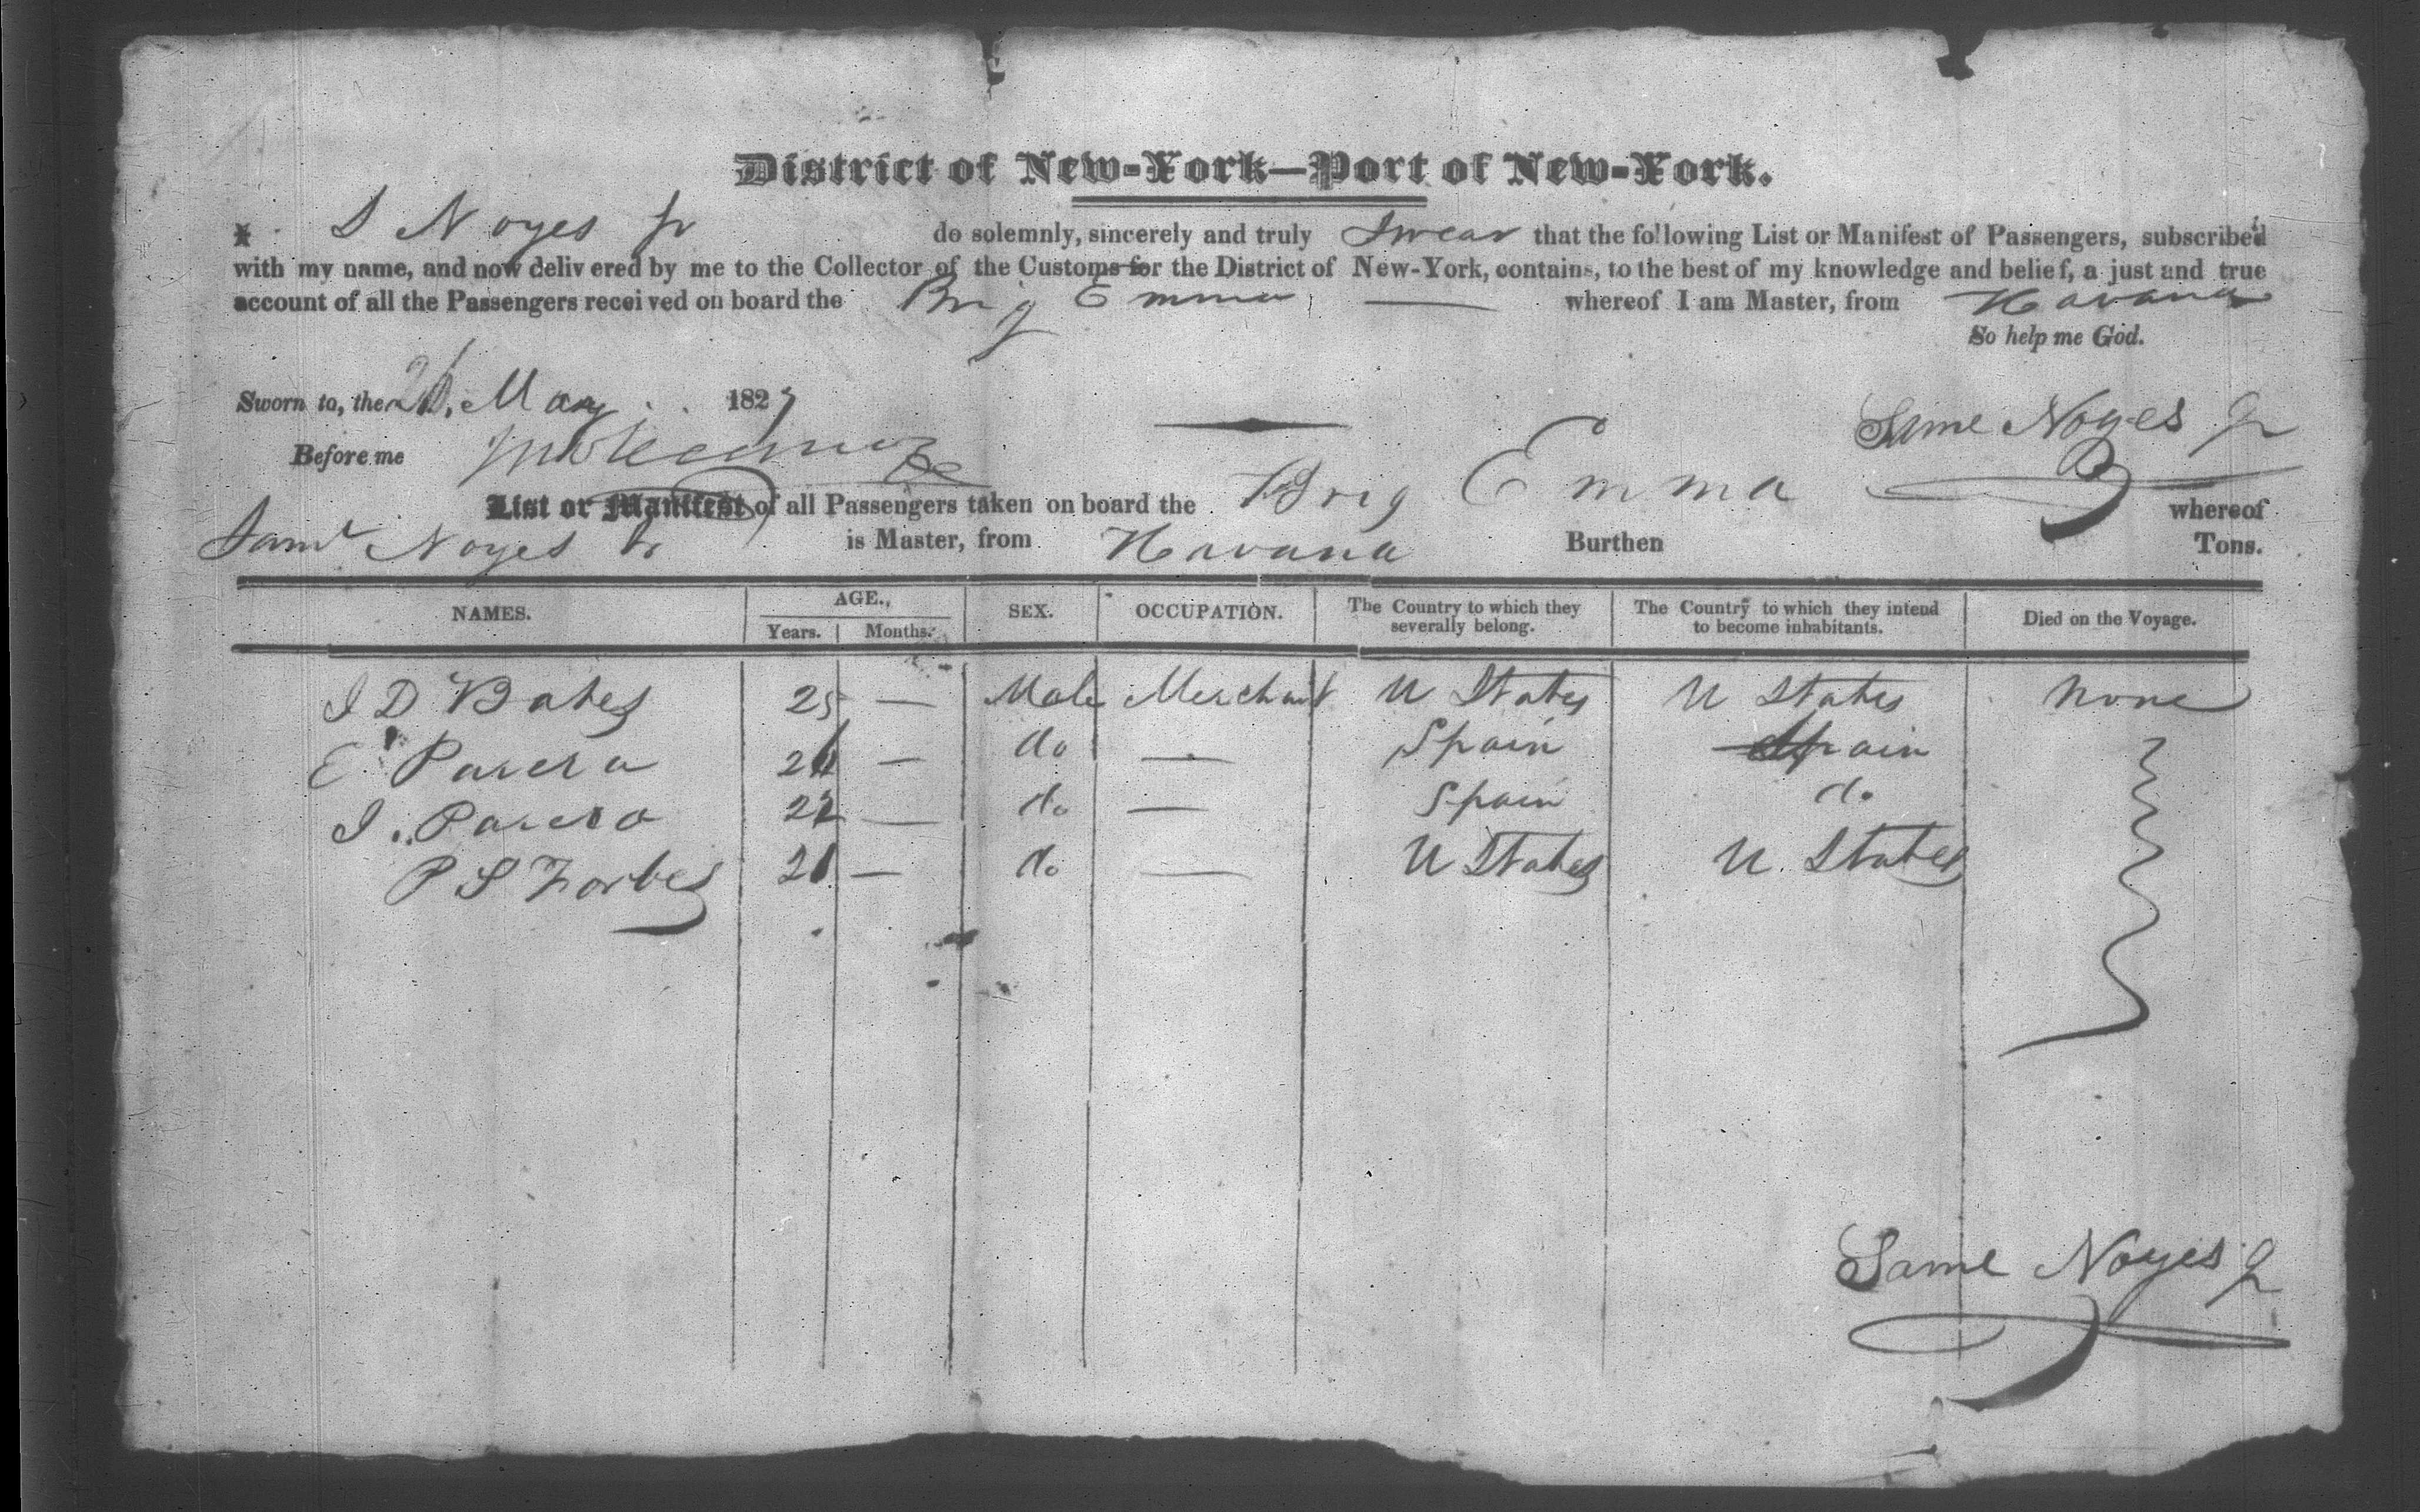 District of New-York—Port of New-York.
I S Noyes Jr do solemnly, sincerely and truly Swear that the following List or Manifest of Passengers, subscribed
with my name, and now delivered by me to the Collector of the Customs for the District of New-York, contains, to the best of my knowledge and belief, a just and true
account of all the Passengers received on board the Brig Emma — whereof I am Master, from Havana
So help me God.
Sworn to, the May 1827
Saml Noyes Jr
Before me
List or Manifest of all Passengers taken on board the Brig Emma whereof
Saml Noyes Jr is Master, from Havana Burthen Tons.
NAMES. AGE., SEX. OCCUPATION. The Country to which they severally belong. The Country to which they intend to become inhabitants. Died on the Voyage.
Years. Months.
J D Bates 25 — Male Merchant U States U States None
E. Parera — do — Spain Spain
J. Parera 22 — do — Spain do
P S Forbes 21 — do — U States U. States
Saml Noyes Jr